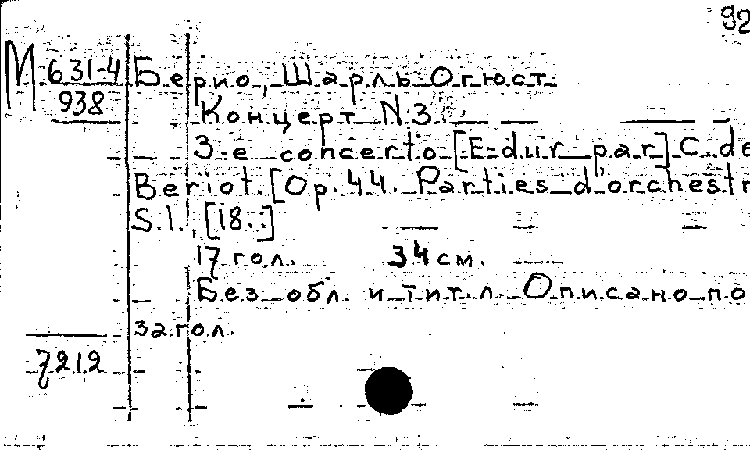 92
М 631-4
938
Берио, Шарль Огюст.
Концерт N3.
3-e concerto [E-dur par] C. de
Beriot. [Op. 44. Parties d'orchestr
S.l., [18..]
17 гол. 34 см.
Без обл. и тит. л. Описано по
загол.
7212